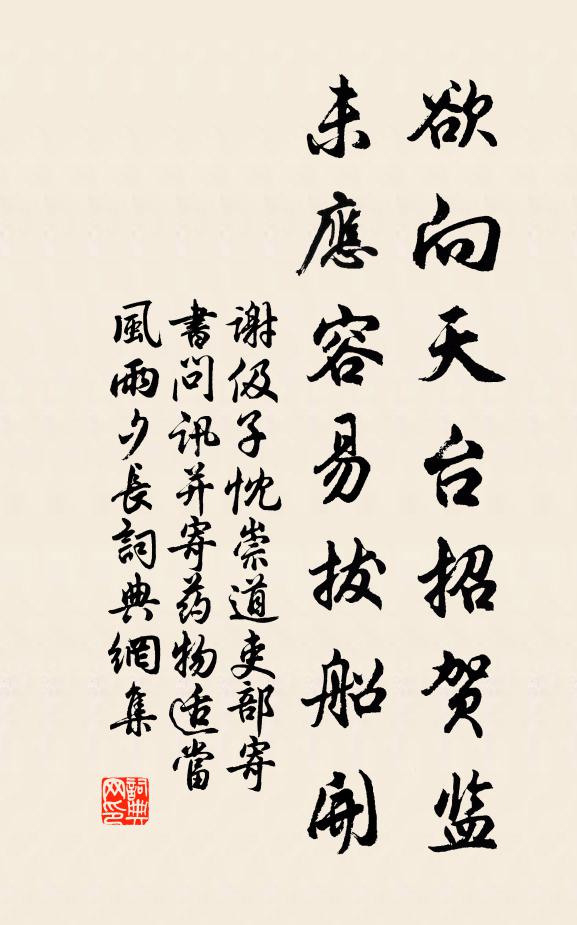 欲向天台招贺监
未應容易拔船開
谢伋子忱崇道吏部寄
書問讯并寄药物适當
風雨夕長詞典網集
詞典
网印